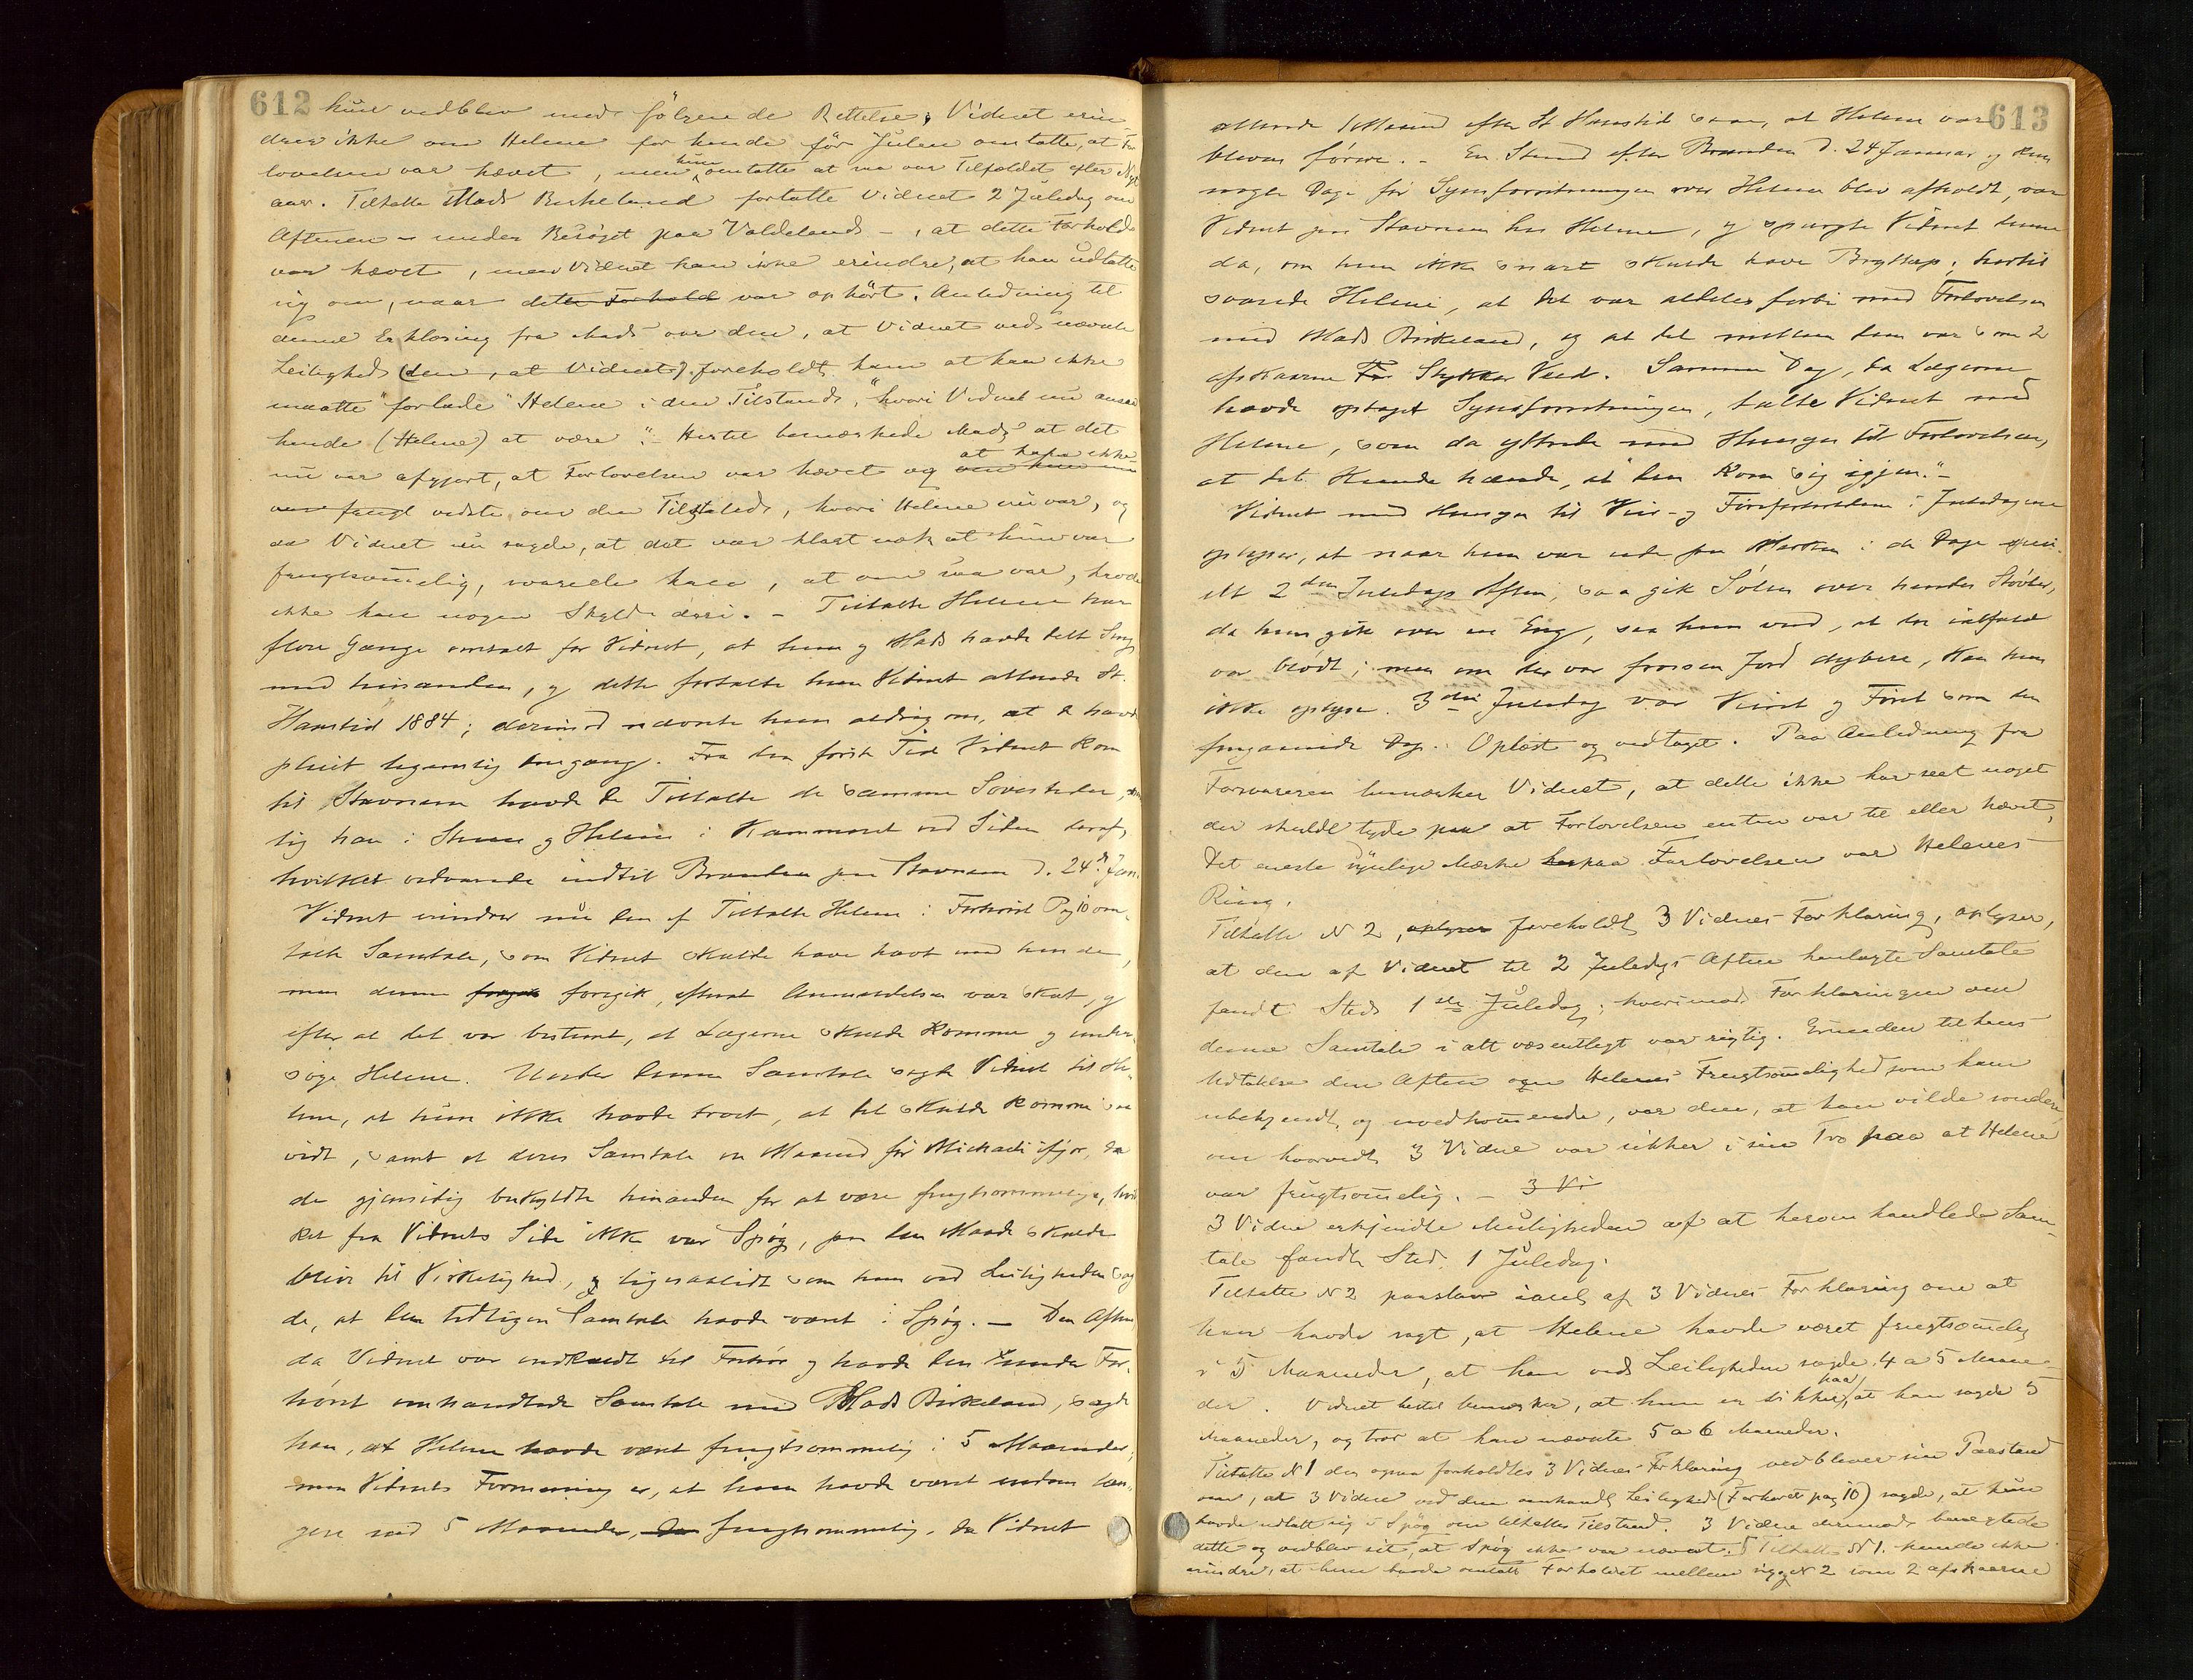 612
hun vedblev med følgende Rettelse; Vidnet erin-
drer ikke om Helene for hende før Julen omtalte, at For
lovelsen var hævet, men hun omtalte at saa var Tilfældet efter Nyt
aar. Tiltalte Mads Birkeland fortalte Vidnet 2 Juledag om
Aftenen – under Besøget paa Valdeland –, at dette Forhold
var hævet, men Vidnet kan ikke erindre, at han udtalte
sig om, naar dette Forhold var ophørt. Anledning til
denne Erklæring fra Mads var den, at Vidnet ved nævnte
Leilighed (den, at Vidnet) foreholdt ham at han ikke
maatte "forlade" Helene i den Tilstand, "hvori Vidnet nu ansaa
hende (Helene) at være". – Hertil bemærkede Mads at det
nu var afgjort, at Forlovelsen var hævet og at han ikke
vidste om den Tilstand, hvori Helene nu var, og
da Vidnet nu sagde, at det var klart nok at hun var
frugtsommelig, svarede han, at om saa var, havde
ikke han nogen Skyld deri. – Tiltalte Helene har
flere Gange omtalt for Vidnet, at hun og Mads havde delt Seng
med hinanden, og dette fortalte hun Vidnet allerede St.
Hanstid 1884; derimod nævnte hun aldrig om, at de havde
pleiet legemlig Omgang. Fra den første Tid Vidnet kom
til Stavnem havde de Tiltalte de samme Sovesteder, nem
lig han i Stuen og Helene i Kammeret ved Siden deraf,
hvilket vedvarede indtil Branden paa Stavnem d. 24de Jan.
Vidnet erindrer nu den af Tiltalte Helene i Forhøret Pag 10 om-
talte Samtale, som Vidnet skulde have havt med hende,
men denne foregik, efterat Anmeldelsen var skeet, og
efter at det var bestemt, at Lægerne skulde komme og under-
søge Helene. Under denne Samtale sagde Vidnet til He-
lene, at hun ikke havde troet, at det skulde komme saa
vidt, samt at deres Samtale en Maaned før Michaeli ifjor, da
de gjensidig beskyldte hinanden for at være frugtsommelige, hvil
ket fra Vidnets Side ikke var Spøg, paa den Maade skulde
blive til Virkelighed, og ligesaalidt som hun ved Leiligheden sag
de, at den tidligere Samtale havde været i Spøg. – Den Aften
da Vidnet var indkaldt til Forhør og havde den under For-
høret omhandlede Samtale med Mads Birkeland, sagde
han, at Helene havde været frugtsommelig i 5 Maaneder,
men Vidnets Formening er, at hun havde været endnu læn-
gere end 5 Maaneder, frugtsommelig, da Vidnet
613
allerede 1 Maaned efter St Hanstid saa, at Helene var
bleven førere. – En Stund efter Branden d. 24 Januar og kun
nogle Dage før Synsforretningen over Helene blev afholdt, var
Vidnet paa Stavnem hos Helene, og spurgte Vidnet denne
da, om hun ikke snart skulde have Bryllup; hertil
svarede Helene, at det var aldeles forbi med Forlovelsen
med Mads Birkeland, og at det mellem dem var som 2
afskaarne Stykker Ved. Samme Dag, da Lægerne
havde optaget Synsforretningen, talte Vidnet med
Helene, som da yttrede med Hensyn til Forlovelsen,
at det kunde hænde, at "den kom sig igjen". –
Vidnet med Hensyn til Veir- og Føreforholdene i Juledagene
oplyser, at naar hun var ude paa Marken i de Dage speci-
elt 2den Juledags Aften, saa gik Sølen over hendes Støvler,
da hun gik over en Eng, saa hun ved, at der ialfald
var blødt; men om der var frossen Jord dybere, kan hun
ikke oplyse. 3die Juledag var Veiret og Føret som den
foregaaende Dag. Oplæst og vedtaget. Paa Anledning fra
Forsvareren bemærker Vidnet, at dette ikke har seet noget
der skulde tyde paa at Forlovelsen enten var til eller hævet,
Det eneste synlige Mærke paa Forlovelsen var Helenes
Ring.
Tiltalte N 2, foreholdt 3 Vidnes Forklaring, oplyser,
at den af Vidnet til 2 Juledags Aften henlagte Samtale
fandt Sted 1ste Juledag; hvorimod Forklaringen om
denne Samtale i alt væsentligt var rigtig. Grunden til hans
Udtalelse den Aften om Helenes Frugtsommelighed som ham
ubekjendt og uvedkommende, var den, at han vilde sondere
om hvorvidt 3 Vidne var sikker i sin Tro paa at Helene
var frugtsommelig. – 3 Vi
3 Vidne erkjendte Muligheden af at herom handlede Sam-
tale fandt Sted 1 Juledag.
Tiltalte N 2 paastaar i anl. af 3 Vidnes Forklaring om at
han havde sagt, at Helene havde været frugtsommelig
i 5 Maaneder, at han ved Leiligheden sagde 4 a 5 Maane-
der. Vidnet hertil bemærker, at hun er sikker paa, at han sagde 5
Maaneder, og tror at han nævnte 5 a 6 Maaneder.
Tiltalte N 1 der ogsaa forholdtes 3 Vidnes Forklaring vedblever sin Paastand
om, at 3 Vidne ved den omhandl. Leilighed (Forhøret pag 10) sagde, at hun
havde udtalt sig i Spøg om tiltaltes Tilstand. 3 Vidne derimod benegtede
dette og vedblev sit, at Spøg ikke var nævnt. Tiltalte N 1. kunde ikke
erindre, at hun havde omtalt Forholdet mellem sig og N 2 som 2 afskaarne